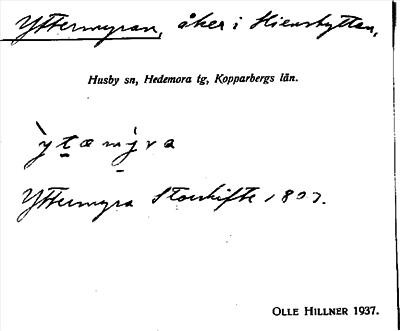 Yttermyran, åker i Stiernshyttan,
Husby sn, Hedemora tg, Kopparbergs län.
Yttermyra Storskifte 1807.
OLLE HILLNER 1937.